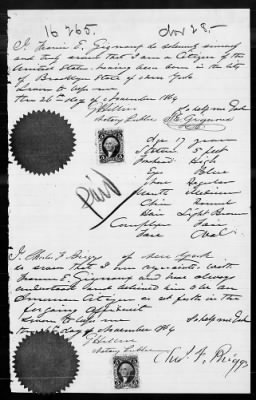 16265. Nov 28
I, Francis E. Gignoux do solemnly swear
and truly swear that I am a Citizen of the
United States having been born in the City
of Brooklyn State of New York
Sworn to before me
this 26th day of November 1864
So help me God
Notary Public
Age 17 years
Stature
Forehead High
Eye Blue
Nose Regular
Mouth Medium
Chin Round
Hair Light Brown
Complexion Fair
Face Oval
Paid
I, Charles F. Briggs of New York
do swear that I am acquainted with
Francis E. Gignoux and have always
understood and believed him to be an
American Citizen as set forth in the
foregoing affidavit
Sworn to before me So help me God
this 26th day of November 1864
Notary Public
Chas. F. Briggs